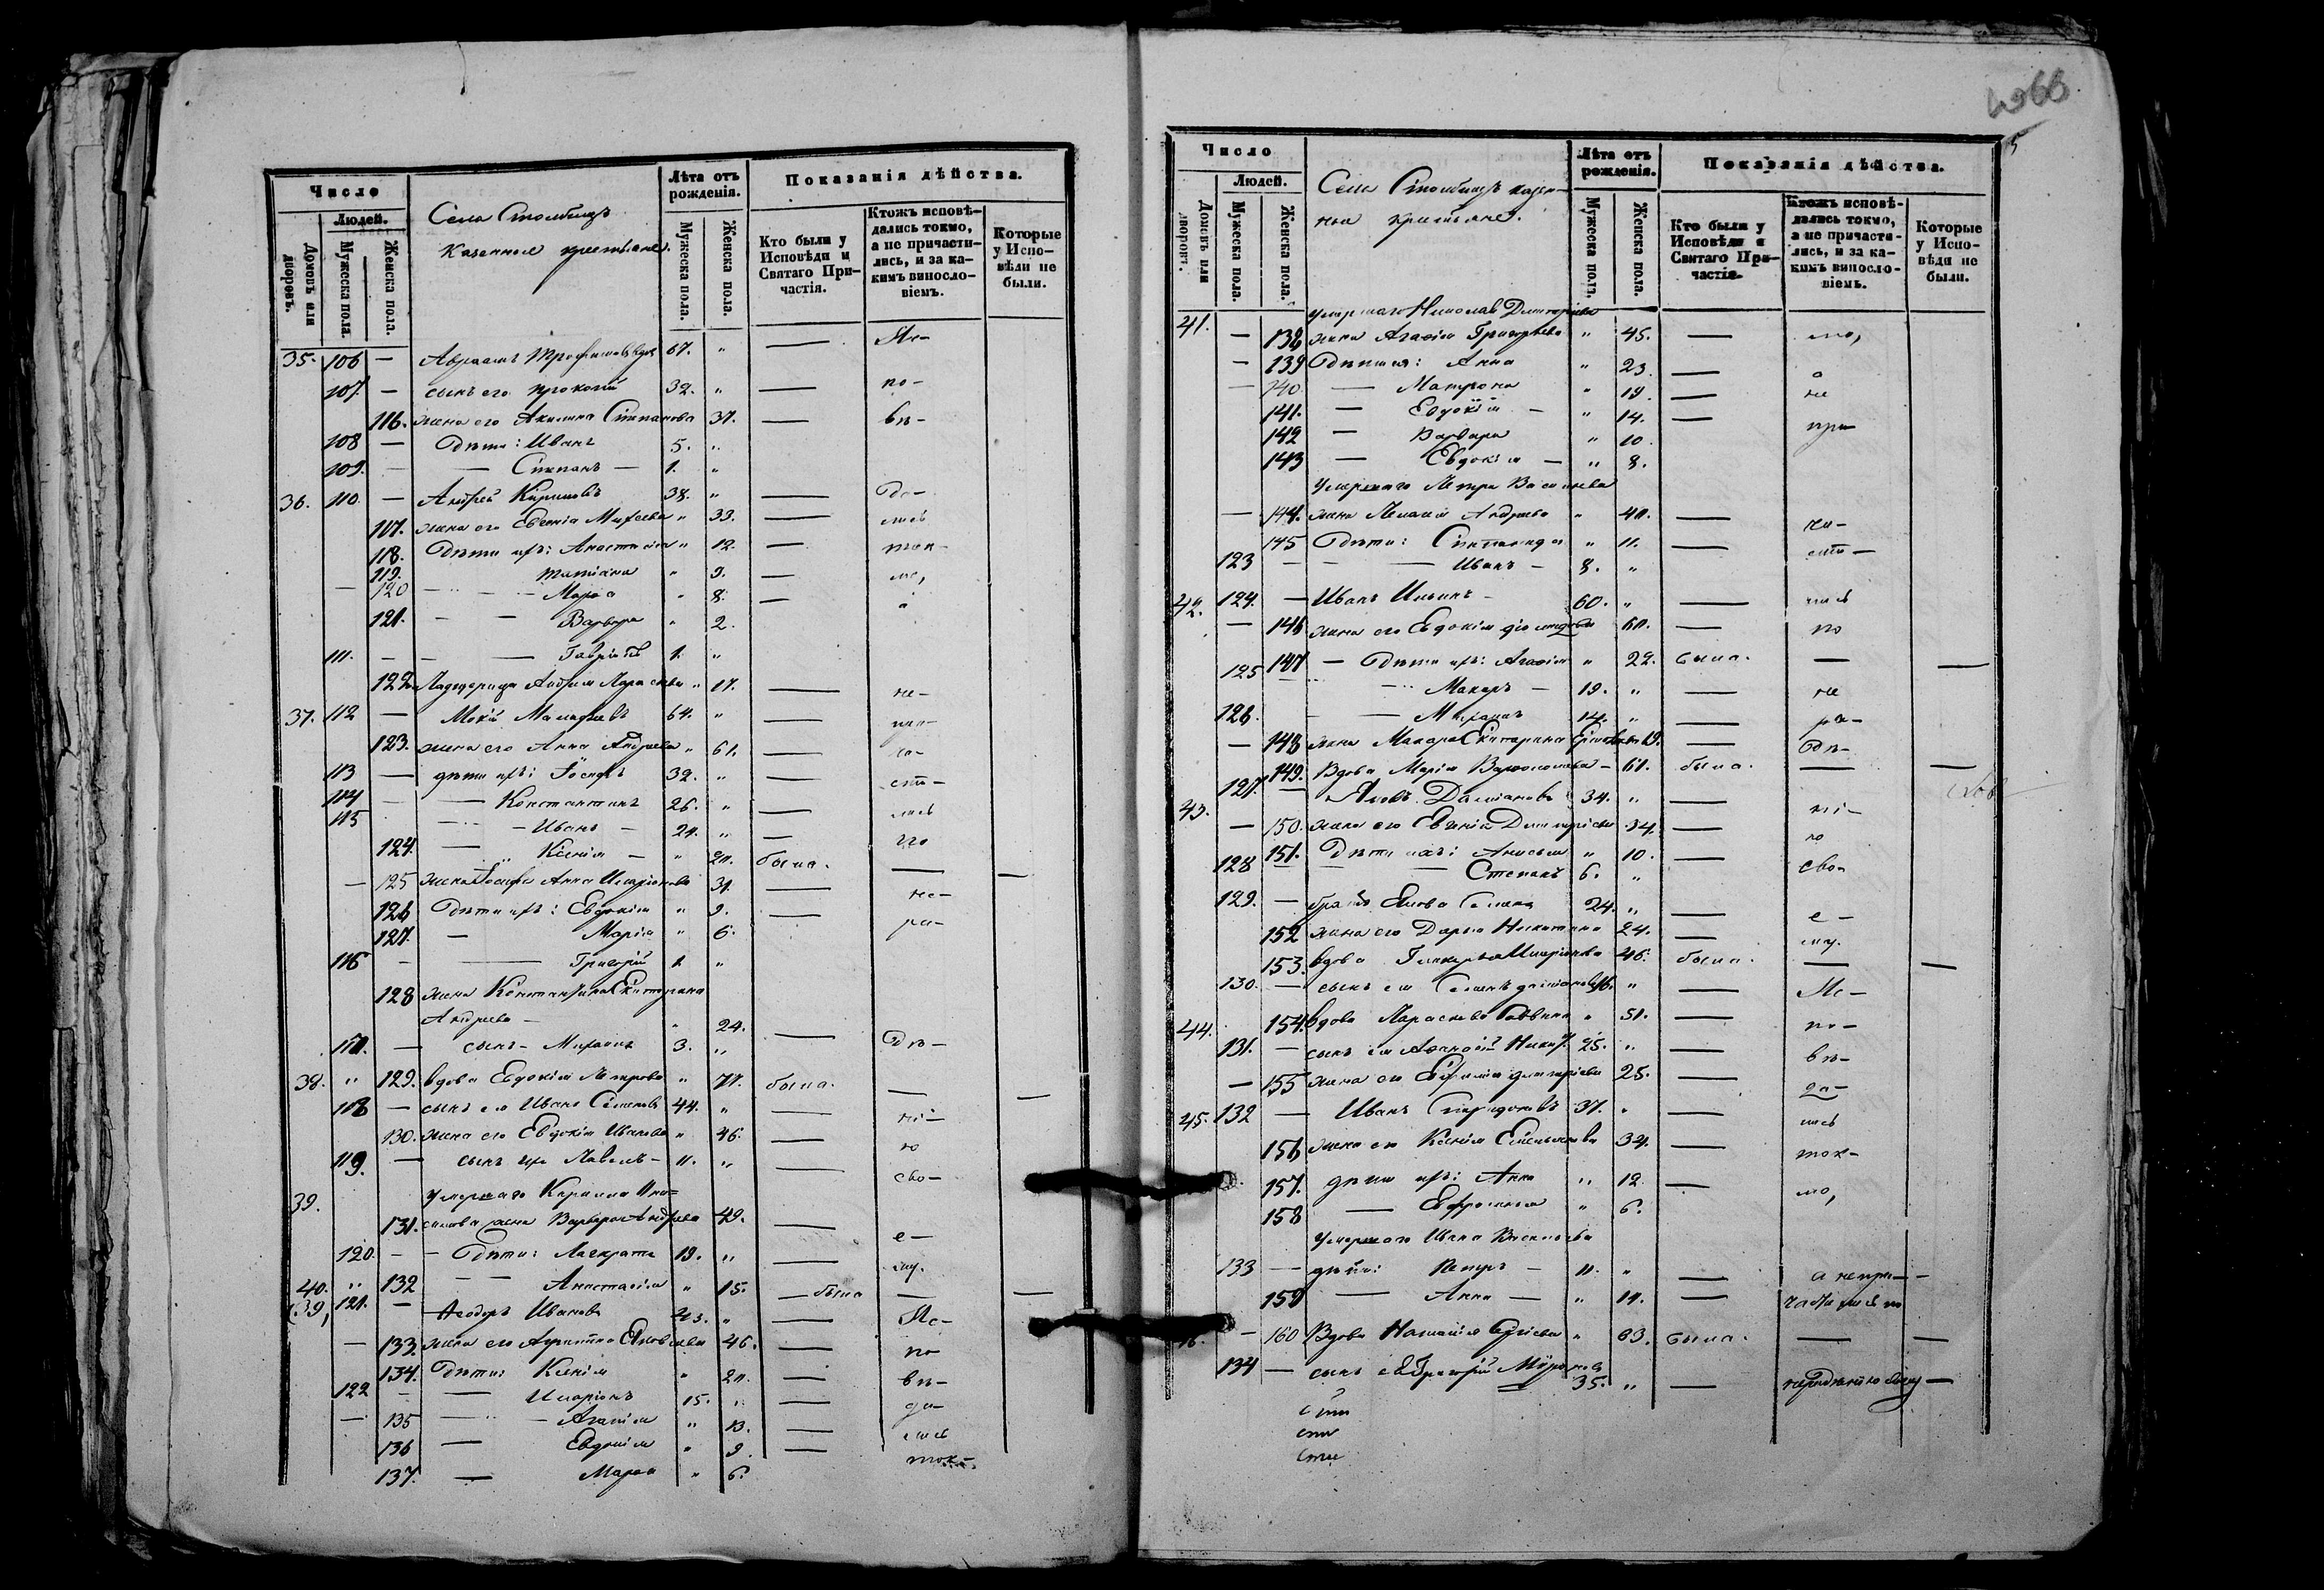 Число
Людей.
Домовъ или дворовъ.
Мужеска пола.
Женска пола.
Села Столбищъ
казенные крестьяне.
Лѣта отъ рожденія.
Мужеска пола.
Женска пола.
Показанія дѣйства.
Кто были у Исповѣди и Святаго Причастія.
Ктожъ исповѣ-
дались токмо,
а не причасти-
лись, и за ка-
кимъ винословіемъ.
Которые у Испо-
вѣди не были.
35. 106 — Авраамъ Трофимовъ вдов 67. " — Ис-
107. — сынъ его Прокопій 32. " — по-
116. жена его Акилина Степанова 37. — вѣ-
108 — дѣти: Иванъ 5. "
109. — — Степанъ — 1. "
36. 110. — Андрей Кириловъ 38. " — да-
117. жена его Евгенія Матѳеева " 33. — лись
118. Дѣти ихъ: Анастасія " 12. — ток-
119. Татіана " 9. — мо,
— 120 — Марѳа " 8. — а
121. — — Варвара " 2.
111. — — Гавріилъ 1. "
122. Падщерица Андрея Параскева " 17. — не
37. 112 — Мокій 64. " — при-
123. жена его Анна Андреева " 61. — ча-
113 — дѣти ихъ: Іосифъ 32. " — сти-
114 — — Константинъ 26. " — лись
115 — Иванъ — 21. " — по
124. — Ксенія — " 20. была. — —
— 125 жена Іосифа Анна Иларіонова 31. — не-
126 Дѣти ихъ: Евдокія " 9. — ра-
127. — Марія " 6.
116 — — Григорій 1. "
128 жена Константина Екатерина
Андреева — " 24. —
117. — сынъ — Миронъ 3. " дѣ-
38. " 129. вдова Евдокія Петрова " 71. была. — —
118 — сынъ ея Иванъ Семеновъ 44. " — ні-
130. жена его Евдокія Иванова " 46. — ю
119. — сынъ ихъ Павелъ — 11. " — сво-
39. умершаго Кирилла
131. жена Варвара Андреева 49. — е-
120. — — Дѣти: Панкратъ 19. " — му.
40. " 132 — — Анастасія " 15. — была — —
(39, 121. — Ѳеодоръ Ивановъ 43. " — Ис-
— 133. жена его Агриппина Яковлева 46. — по
134. Дѣти: Ксенія " 20. — вѣ-
122 — — Иларіонъ 15. " — да-
— 135 — — Агаѳія " 13. — лись
136 — Евдокія " 9. — ток-
137. — Марѳа " 6.
Число
Людей.
Домовъ или дворовъ.
Мужеска пола.
Женска пола.
Села Столбищъ казен-
ные крестьяне.
Лѣта отъ рожденія.
Мужеска пола.
Женска пола.
Показанія дѣйства.
Кто были у Исповѣди и Святаго Причастія.
Ктожъ исповѣ-
дались токмо,
а не причасти-
лись, и за ка-
кимъ винословіемъ.
Которые у Испо-
вѣди не были.
умершаго Николая Димитріева
41. — 138 жена Агаѳія Григорьева " 45. — мо,
— 139 Дѣти ея: Анна " 23. — а
— 140 — Матрона " 19. — не
141. — Евдокія — " 14. — при
142 — Варвара " 10.
143 — Евдокія — " 8.
Умершаго Петра Васильева
— 144. жена Пелагія Андреева " 40. — ча-
145 Дѣти: " 11. — сти-
123 — — — Иванъ — 8. "
42. 124. — Иванъ Ильинъ — 60. " — лись
— 146 жена его Евдокія 60. — по
147 — Дѣти ихъ: Агаѳія " 22. была. — —
125 — Макаръ — 19. " — не
126. — — Миронъ 14. " — ра-
— 148 жена Макара Екатерина 19. — дѣ-
149. Вдова Марія Варѳоломеева — 61. была. — —
43. 127. — Яковъ Даміановъ 34. " — ні-
— 150. жена его Евгенія Димитріева 34. — ю
151. Дѣти ихъ: Анисья " 10. — сво-
128 — — Степанъ 6. "
129. — братъ Якова Семенъ 24. " — е-
152 жена его Дарья Никитина 24. — му.
153. вдова Гликерія Иларіонова 46. была. — —
130. — сынъ ея Семенъ 16. " — Ис-
44. 154. Вдова Параскева " 51. — по-
131. — сынъ ея Аѳанасій Никит. 25. " — вѣ-
— 155 жена его Евфимія Димитріева 25. — да-
45. 132 — Иванъ Спиридоновъ 37. " — лись
156 жена его Ксенія Емельянова 34. — ток-
157. дѣти ихъ: Анна " 12. — мо,
158 — Евфросинія " 6.
Умершаго Ивана Васильева
133 — дѣти: Петръ — 11. " — а непри- —
159 — Анна — " 11. — частились по
46. — 160 Вдова Наталія Сергіева " 63. была. — —
134 — сынъ ея Григорій Мироновъ 35. " — нерадѣнію своему —
сти
сти